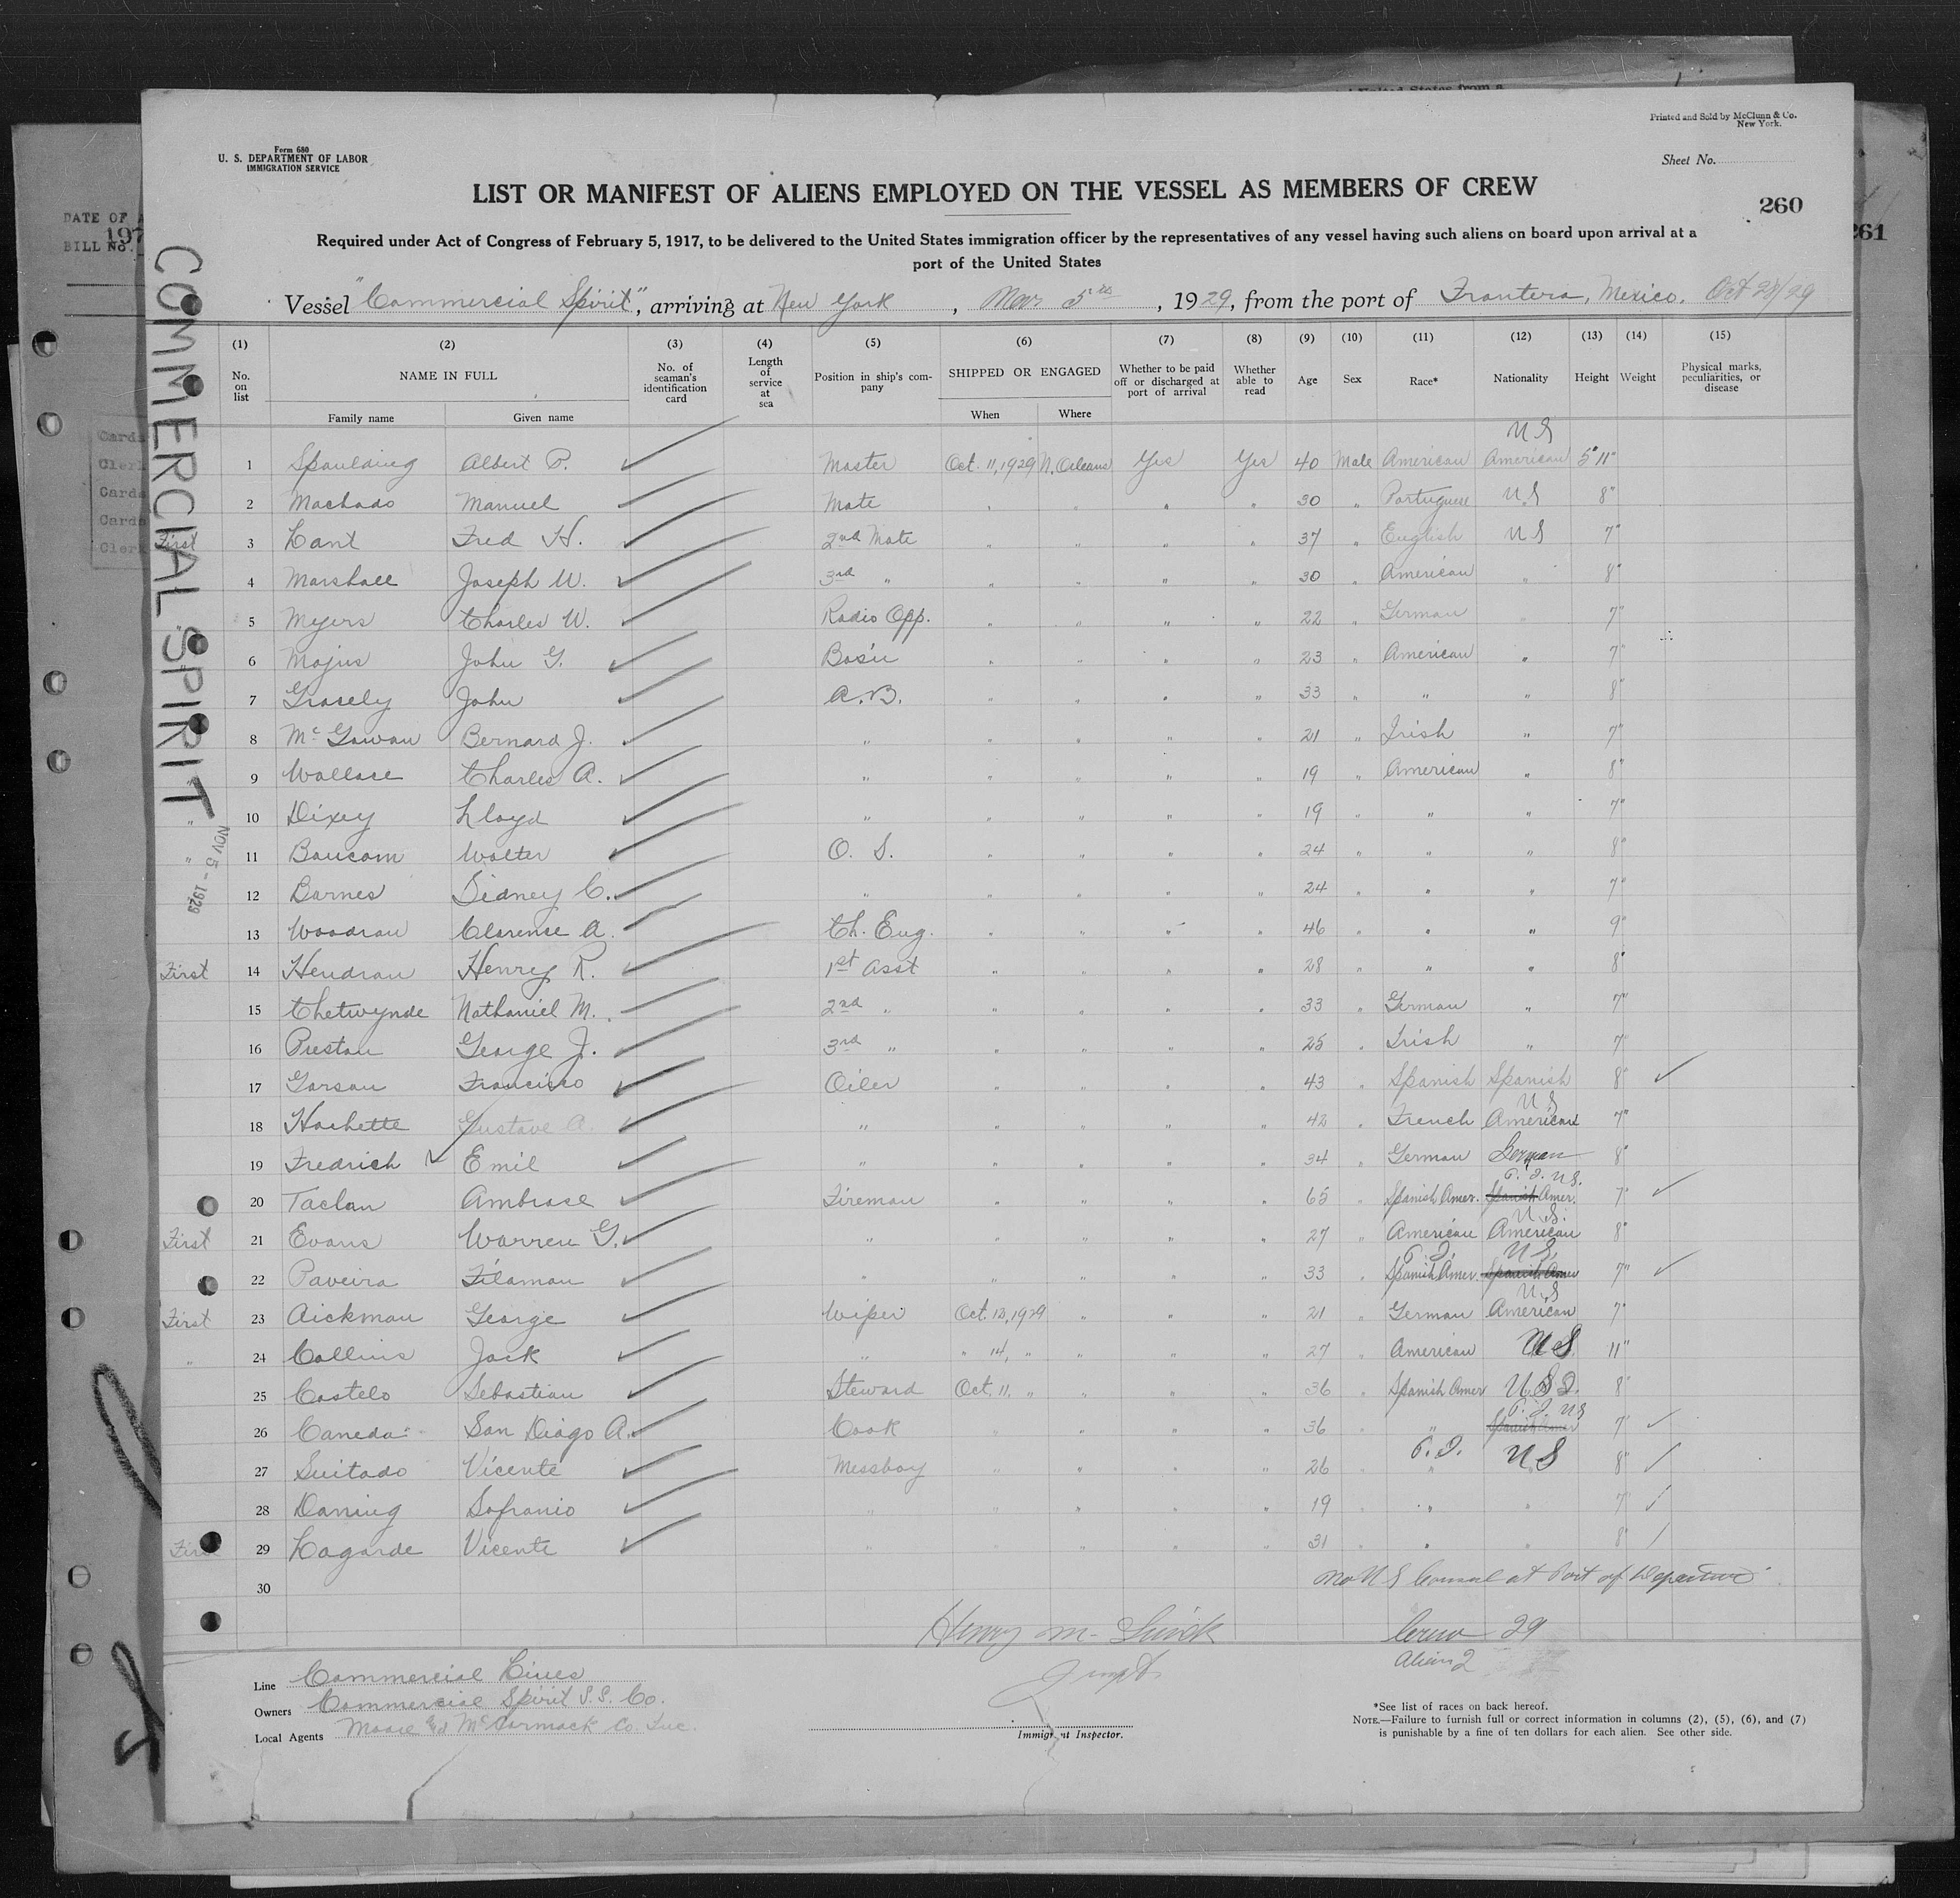 Printed and Sold by McClunn & Co.
New York.
Form 680
U. S. DEPARTMENT OF LABOR
IMMIGRATION SERVICE
Sheet No.
LIST OR MANIFEST OF ALIENS EMPLOYED ON THE VESSEL AS MEMBERS OF CREW
260
261
DATE OF
197
BILL NO.
Required under Act of Congress of February 5, 1917, to be delivered to the United States immigration officer by the representatives of any vessel having such aliens on board upon arrival at a
port of the United States
Vessel "Commercial Spirit", arriving at New York, Nov 5th, 1929, from the port of Frontera, Mexico. Oct 28/29
COMMERCIAL SPIRIT
NOV 5 - 1929
(1) (2) (3) (4) (5) (6) (7) (8) (9) (10) (11) (12) (13) (14) (15)
No. on list NAME IN FULL No. of seaman's identification card Length of service at sea Position in ship's company SHIPPED OR ENGAGED Whether to be paid off or discharged at port of arrival Whether able to read Age Sex Race* Nationality Height Weight Physical marks, peculiarities, or disease
Family name Given name When Where
U S
1 Spaulding Albert P. Master Oct. 11, 1929 N. Orleans Yes Yes 40 Male American American 5' 11"
2 Machado Manuel Mate " " " " 30 " Portuguese U S 8"
First 3 Lant Fred H. 2nd Mate " " " " 37 " English U S 7"
4 Marshall Joseph W. 3rd " " " " " 30 " American " 8"
5 Myers Charles W. Radio Opp. " " " " 22 " German " 7"
6 Majus John G. Bos'n " " " " 23 " American " 7"
7 Grasely John A.B. " " " " 33 " " " 8"
8 McGowan Bernard J. " " " " " 21 " Irish " 7"
9 Wallace Charles A. " " " " " 19 " American " 8"
" 10 Dixey Lloyd " " " " " 19 " " " 7"
" 11 Baucom Walter O. S. " " " " 24 " " " 8"
12 Barnes Sidney C. " " " " " 24 " " " 7"
13 Woodrow Clarence A. Ch. Eng. " " " " 46 " " " 9"
First 14 Hendran Henry R. 1st Asst " " " " 28 " " " 8"
15 Chetwynde Nathaniel M. 2nd " " " " " 33 " German " 7"
16 Preston George J. 3rd " " " " " 25 " Irish " 7"
17 Garsau Francisco Oiler " " " " 43 " Spanish Spanish 8"
U S
18 Hachette Gustave A. " " " " " 42 " French American 7"
19 Fredrich Emil " " " " " 34 " German German 8"
P. I. U.S.
20 Taclan Ambrose Fireman " " " " 65 " Spanish Amer. Spanish Amer. 7"
U.S.
First 21 Evans Warren G. " " " " " 27 " American American 8"
P. I. U S
22 Paveira Filaman " " " " " 33 " Spanish Amer. Spanish Amer 7"
U.S
First 23 Aickman George Wiper Oct. 12, 1929 " " " 21 " German American 7"
" 24 Collins Jack " " 14, " " " " 27 " American U S 11"
25 Castelo Sebastian Steward Oct. 11, " " " " 36 " Spanish Amer U.S.I. 8"
P. I. US
26 Caneda San Diago A. Cook " " " " 36 " " Spanish Amer 7"
P. I. U S
27 Suitado Vicente Messboy " " " " 26 " " " 8"
28 Daning Sofranio " " " " " 19 " " " 7"
First 29 Lagarde Vicente " " " " " 31 " " " 8"
30
No U S Consul at Port of Departure
Crew 29
Alien 2
Line Commercial Lines
Owners Commercial Spirit S.S. Co.
Local Agents Moore and McCormack Co. Inc.
Immigrant Inspector.
*See list of races on back hereof.
NOTE.—Failure to furnish full or correct information in columns (2), (5), (6), and (7)
is punishable by a fine of ten dollars for each alien. See other side.